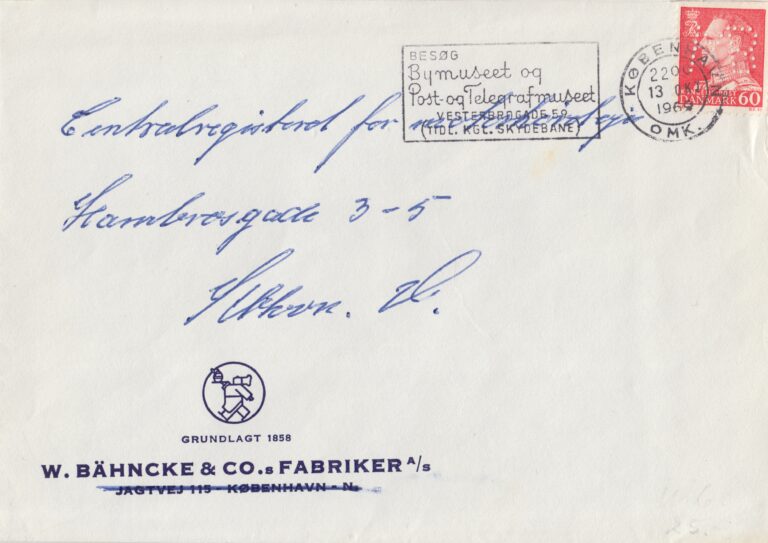 BESØG
Bymuseet og
Post-og Telegrafmuseet
VESTERBROGADE 59
(TIDL. KGL. SKYDEBANE)
KØBENHAVN
13 OKT
OMK.
DANMARK 60
Centralregisteret for
Hambrosgade 3-5
Kbhvn. V.
GRUNDLAGT 1858
W. BÄHNCKE & CO.s FABRIKER A/s
JAGTVEJ 115 - KØBENHAVN - N.
25.-